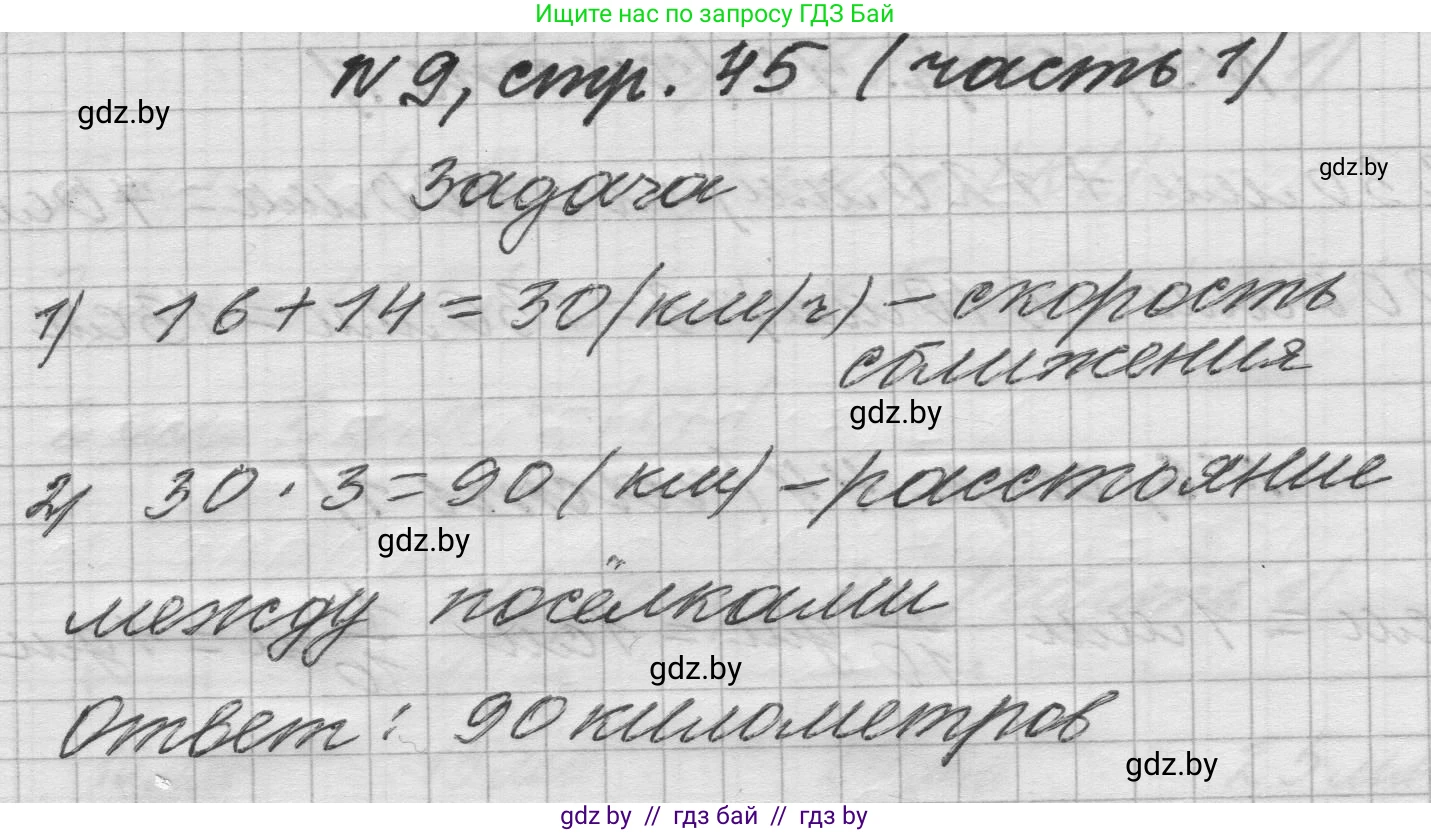 Ищите нас по запросу ГДЗ Бай
N 9, стр. 45 (часть 1)
gdz.by
gdz.by
Задача
1) 16 + 14 = 30 (км/ч) – скорость
сближения
gdz.by
2) 30 · 3 = 90 (км) – расстояние
gdz.by
между посёлками
gdz.by
Ответ: 90 километров
gdz.by
gdz.by // гдз бай // гдз by